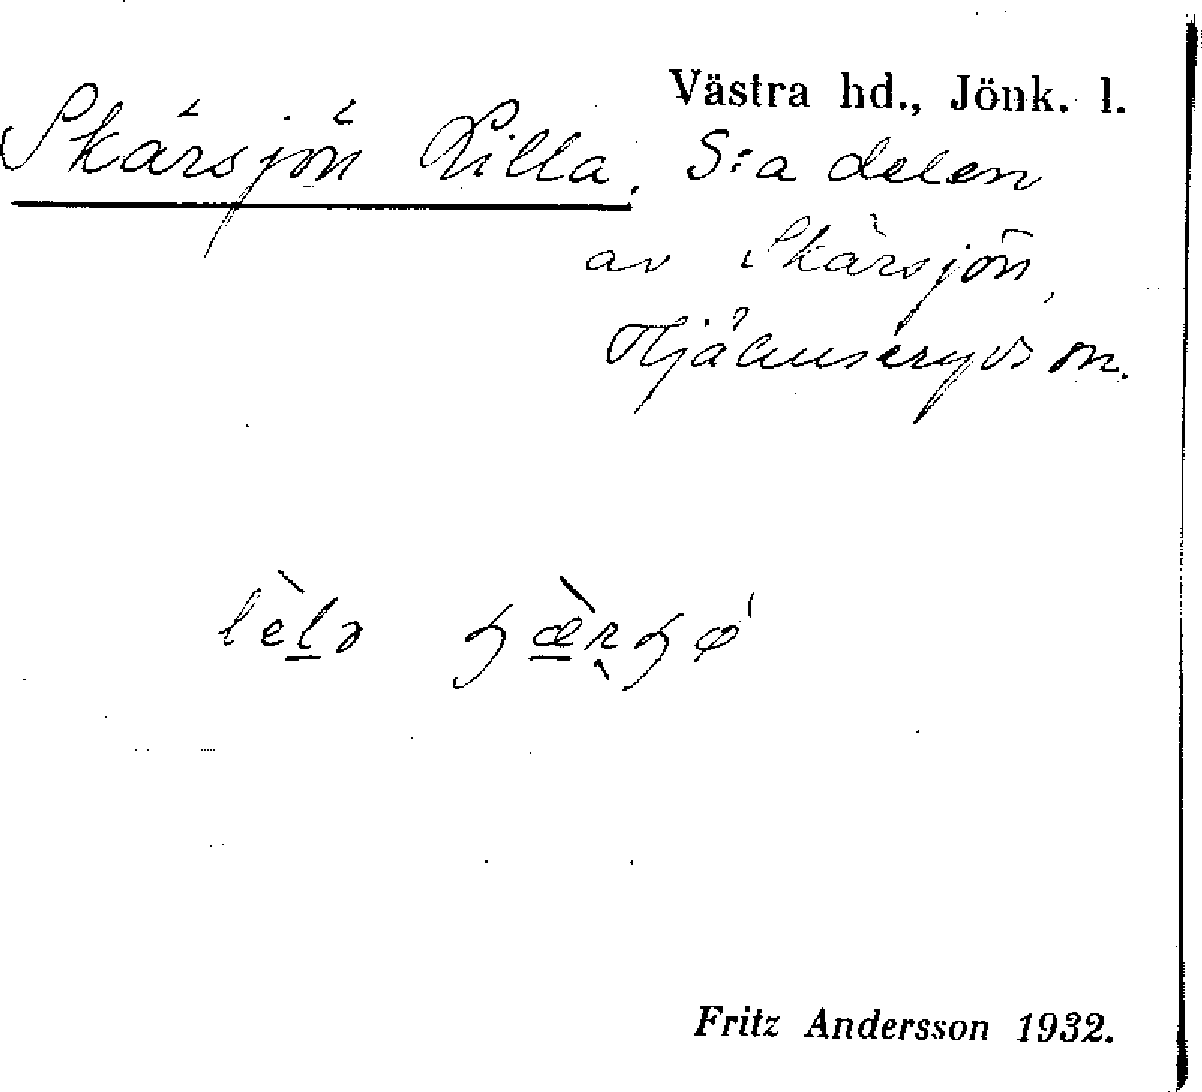 Västra hd., Jönk. l.
Skärsjön Lilla. S:a delen
av Skärsjön,
Hjälmseryds sn.
Fritz Andersson 1932.